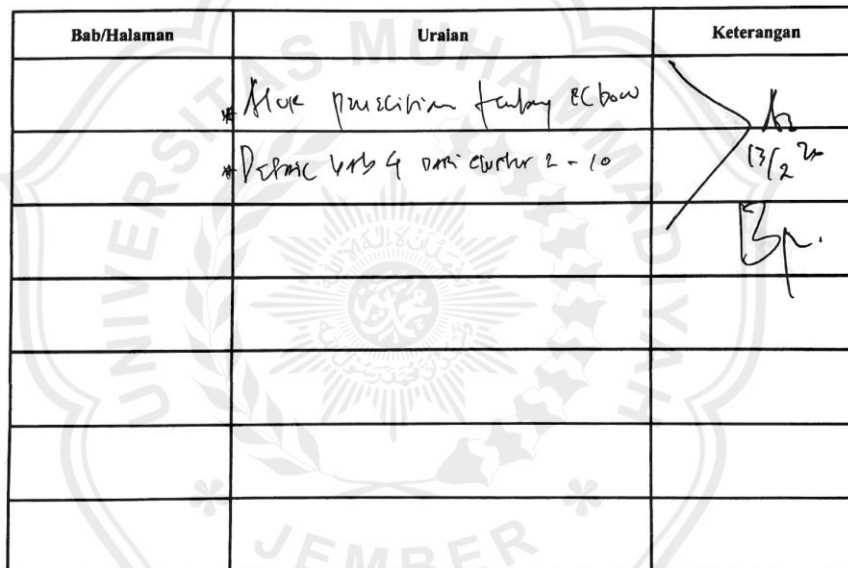 Bab/Halaman Uraian Keterangan
* Alur penelitian tentang elbow
* Detailc bab 4 dari cluster 2 - 10
13/2
UNIVERSITAS MUHAMMADIYAH
JEMBER